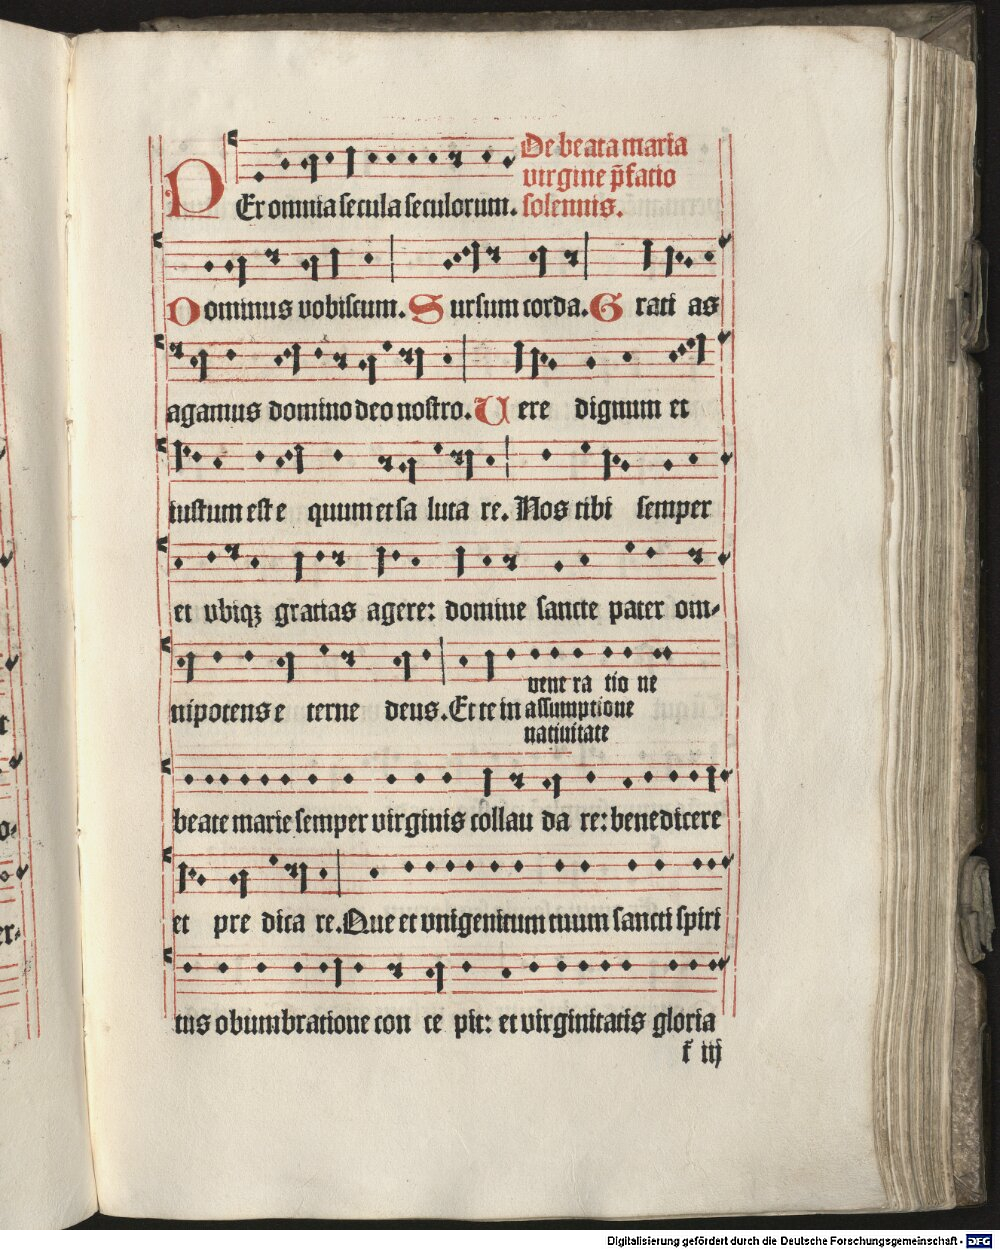 De beata maria
virgine p̄facio
solennis.
PEr omnia secula seculorum.
Dominus vobiscum. Sursum corda. Grati as
agamus domino deo nostro. Uere dignum et
iustum est e quum et sa luta re. Nos tibi semper
et vbiqꝫ gratias agere: domine sancte pater om-
nipotens e terne deus. Et te in
vene ra tio ne
assumptione
natiuitate
beate marie semper virginis collau da re: benedicere
et pre dica re. Que et vnigenitum tuum sancti spiri
tus obumbratione con ce pit: et virginitatis gloria
f iij
Digitalisierung gefördert durch die Deutsche Forschungsgemeinschaft - DFG